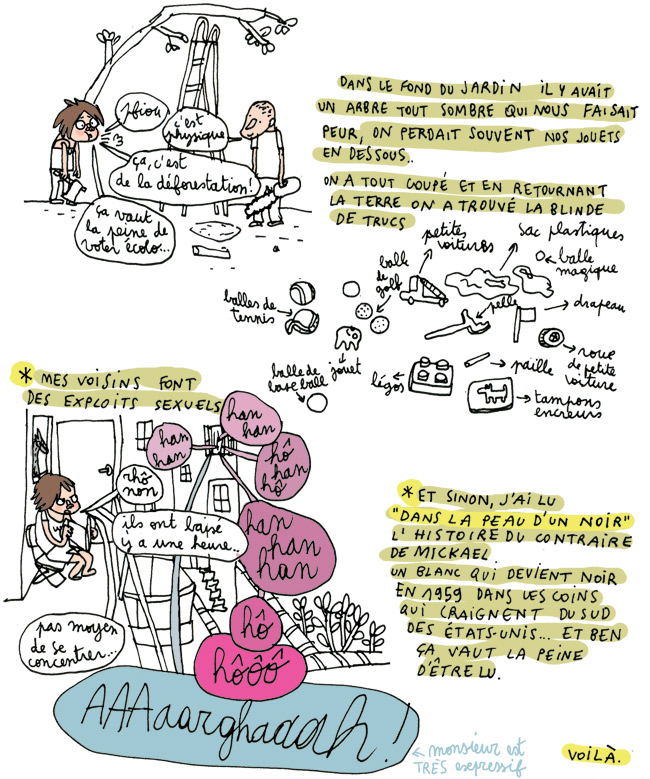 pfiou
c'est
physique
ça, c'est
de la déforestation!
ça vaut
la peine de
voter écolo...
DANS LE FOND DU JARDIN IL Y AVAIT
UN ARBRE TOUT SOMBRE QUI NOUS FAISAIT
PEUR, ON PERDAIT SOUVENT NOS JOUETS
EN DESSOUS..
ON A TOUT COUPÉ ET EN RETOURNANT
LA TERRE ON A TROUVÉ LA BLINDE
DE TRUCS
petites
voitures
sac plastiques
balle
magique
balle
de
golf
balles de
tennis
pelle
drapeau
roue
de petite
voiture
jouet
balle de
base ball
légos
paille
tampons
encreurs
* MES VOISINS FONT
DES EXPLOITS SEXUELS
han
han
han
han
hô
han
hô
rhô
non
ils ont baisé
y a une heure..
han
han
han
pas moyen
de se
concentrer...
hô
hôôô
AAAaarghaaaah!
← monsieur est
TRÈS expressif
* ET SINON, J'AI LU
"DANS LA PEAU D'UN NOIR"
L'HISTOIRE DU CONTRAIRE
DE MICKAEL
UN BLANC QUI DEVIENT NOIR
EN 1959 DANS LES COINS
QUI CRAIGNENT DU SUD
DES ÉTATS-UNIS... ET BEN
ÇA VAUT LA PEINE
D'ÊTRE LU.
VOILÀ.